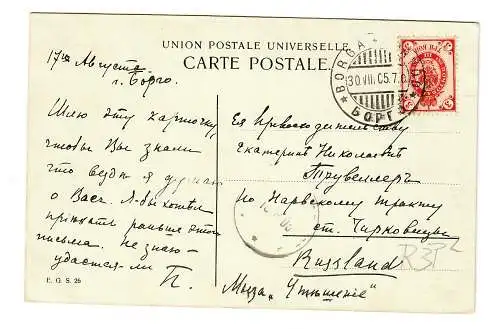 17го Августа
г. Борго.
UNION POSTALE UNIVERSELLE.
CARTE POSTALE.
BORGÅ
30.VII.05.7
БОРГО
Шлю эту карточку,
чтобы Вы знали
что везде я думаю
о Васъ. Я бы хотѣлъ
раньше этого
письма. Не знаю-
удастся-ли П.
Ея Превосходительству
Екатеринѣ Николаевнѣ
Трувеллеръ
по Нарвскому тракту
ст. Чирковицы
Russland
Мыза „Утѣшеніе"
E. G. S. 25